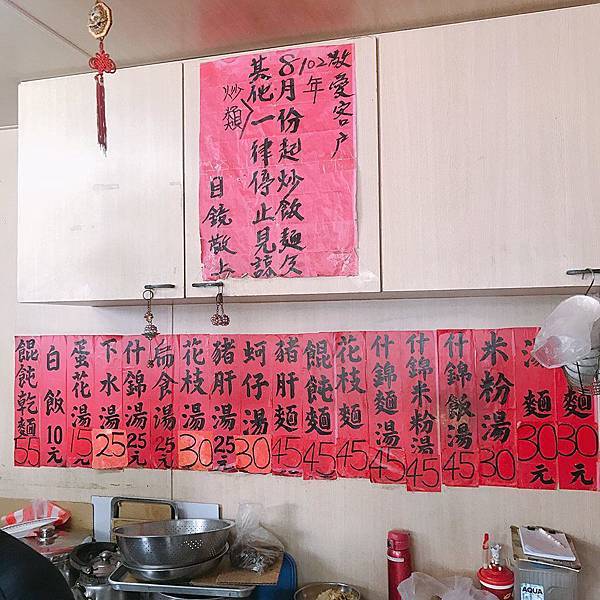 敬愛客户
102年
8月份起炒飯麵久
其他一律停止見諒
炒類
目鏡敬上
餛飩乾麵 55
白飯 10元
蛋花湯 15元
下水湯 25
什錦湯 25元
扁食湯 25元
花枝湯 30
豬肝湯 25元
蚵仔湯 30
豬肝麵 45
餛飩麵 45
花枝麵 45
什錦麵湯 45
什錦米粉湯 45
什錦飯湯 45
米粉湯 30
湯麵 30元
麵 30元
AQUA